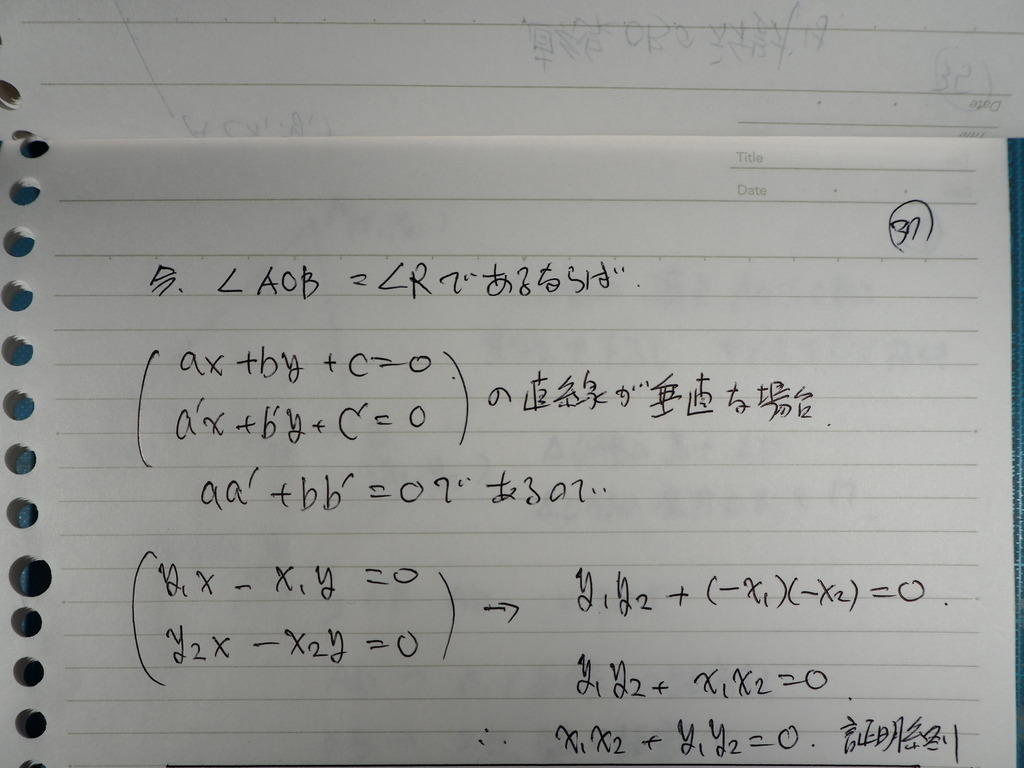 Title
Date
37
今、∠AOB = ∠Rであるならば.
ax + by + c = 0
a'x + b'y + c' = 0
の直線が垂直な場合.
aa' + bb' = 0であるので
y₁x - x₁y = 0
y₂x - x₂y = 0
→ y₁y₂ + (-x₁)(-x₂) = 0.
y₁y₂ + x₁x₂ = 0.
∴ x₁x₂ + y₁y₂ = 0. 証明終り